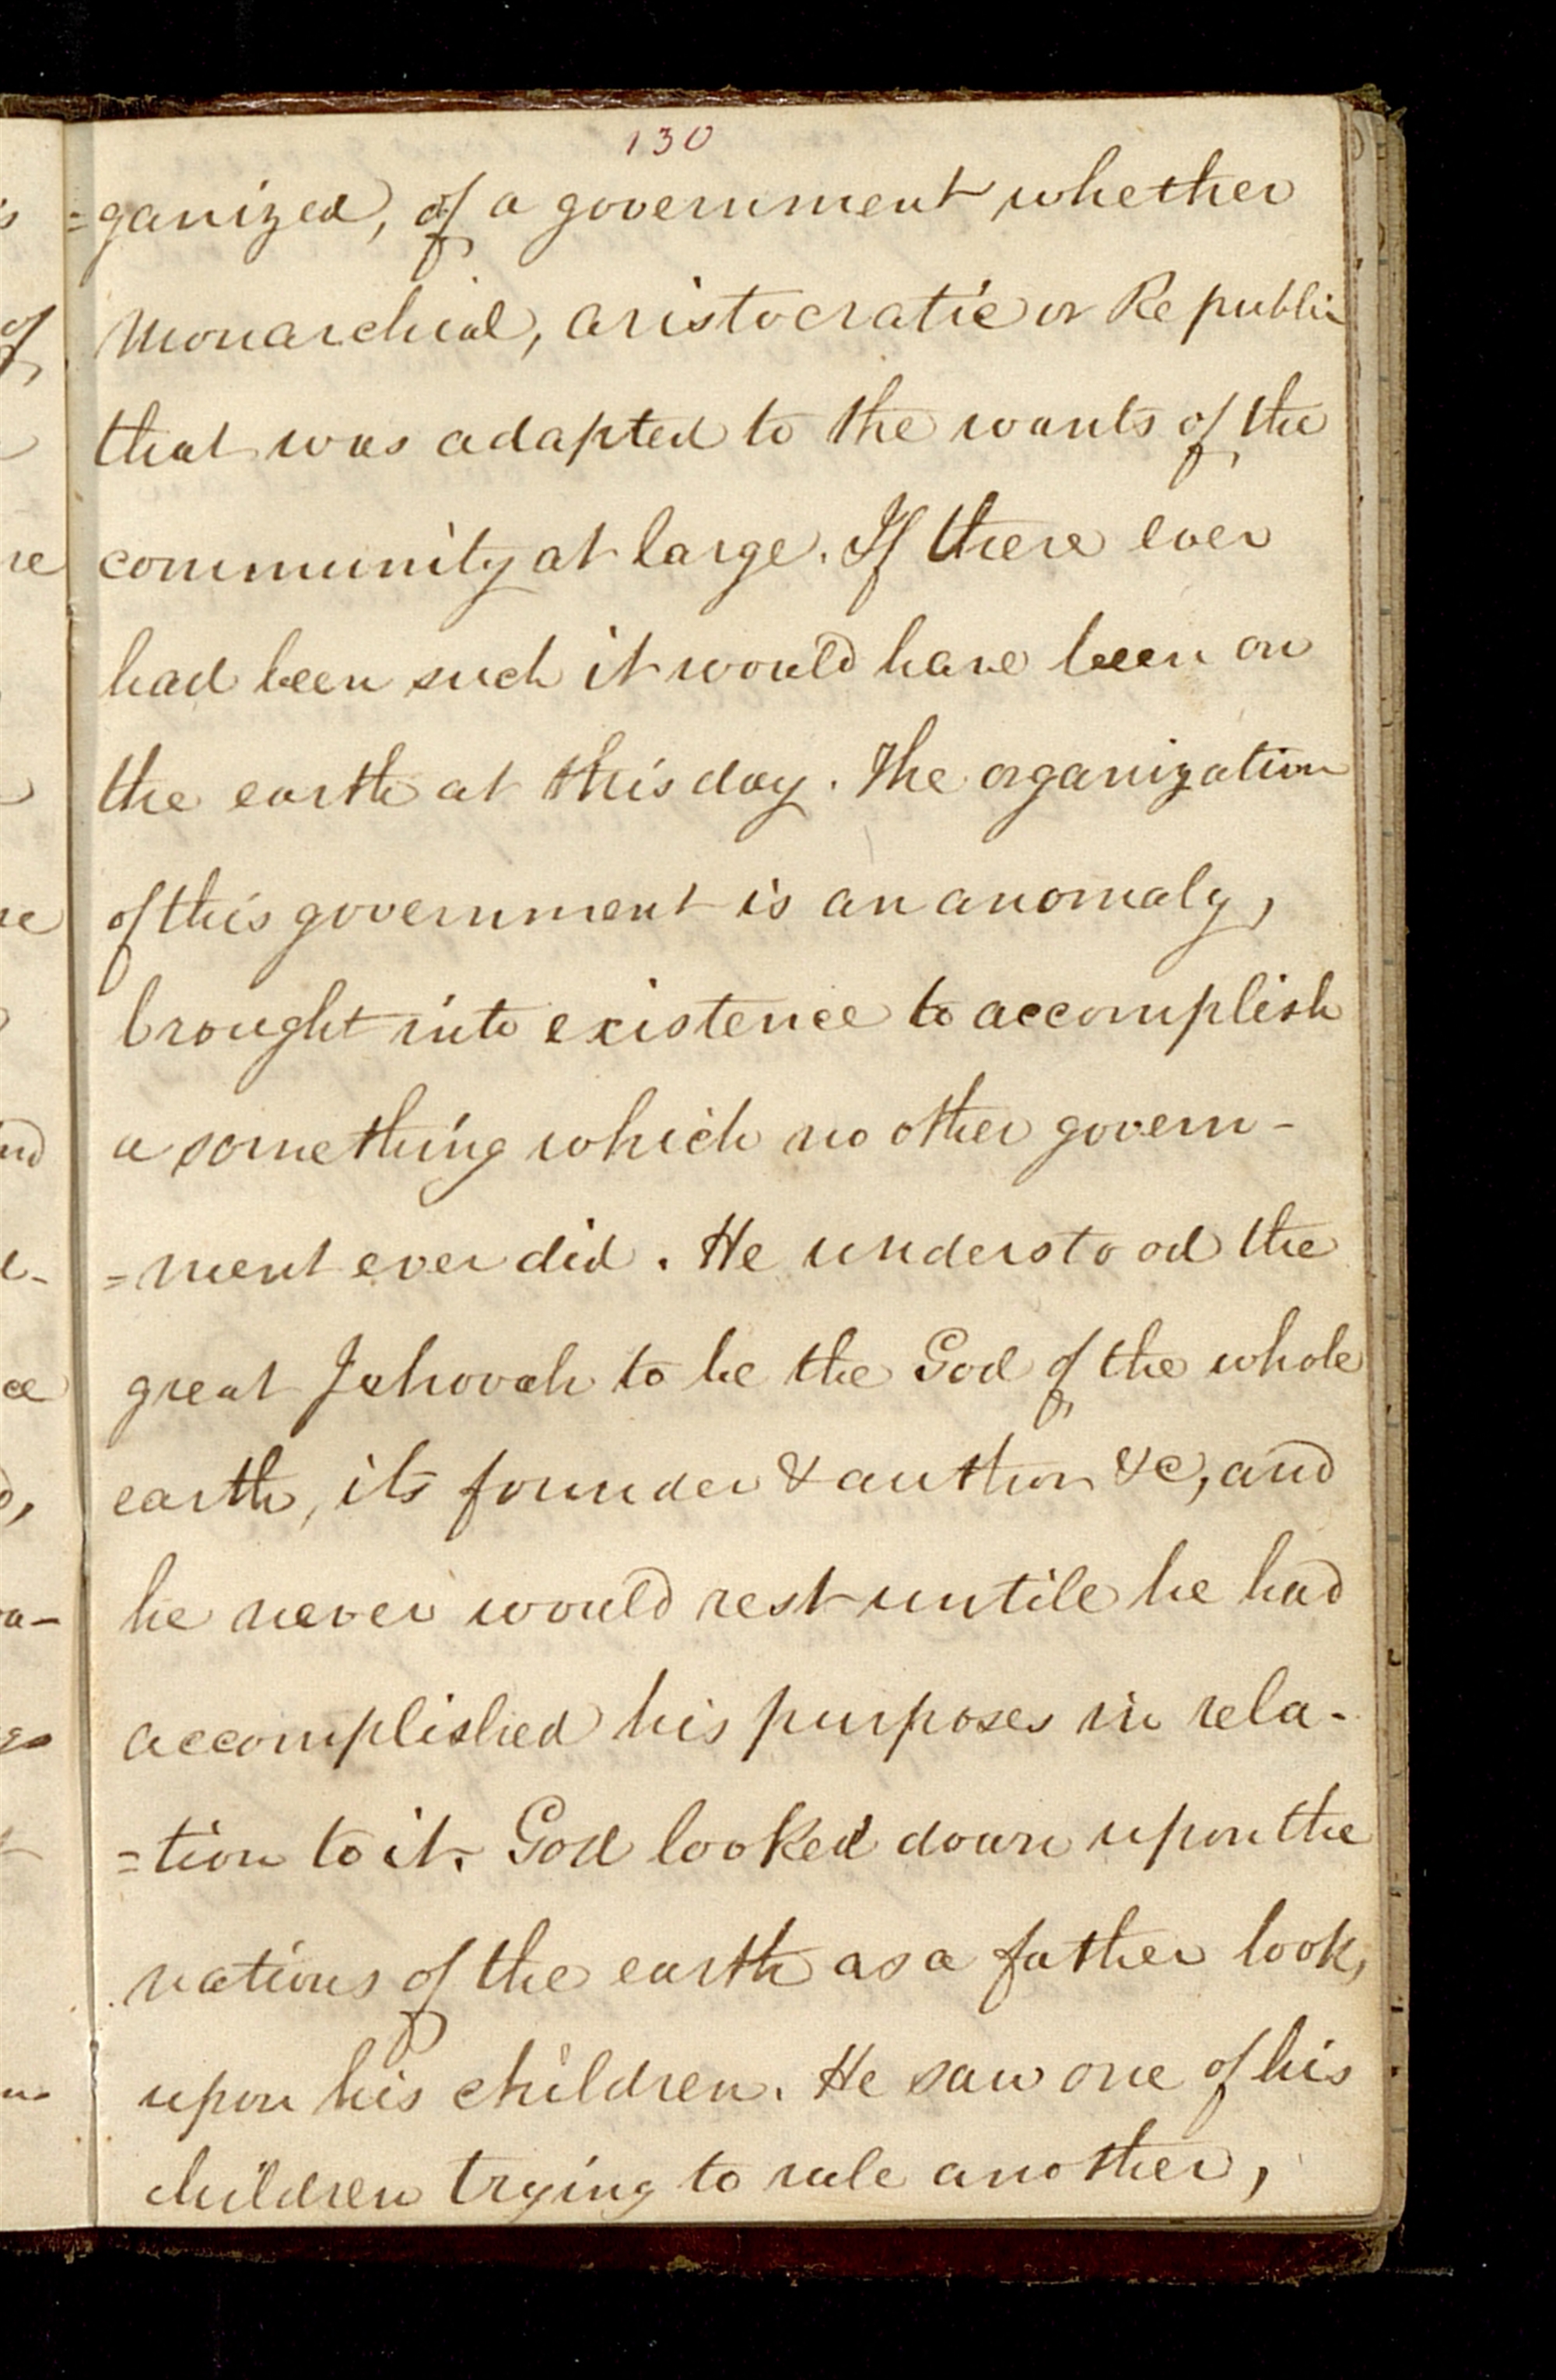 130
=ganized, of a government whether
Monarchial, aristocratic or Republic
that was adapted to the wants of the
community at large. If there ever
had been such it would have been on
the earth at this day. The organization
of this government is an anomaly,
brought into existence to accomplish
a something which no other govern-
=ment ever did. He understood the
great Jehovah to be the God of the whole
earth, its founder & author &c, and
he never would rest untile he had
accomplished his purposes in rela-
=tion to it. God looked down upon the
nations of the earth as a father looks
upon his children. He saw one of his
children trying to rule another,